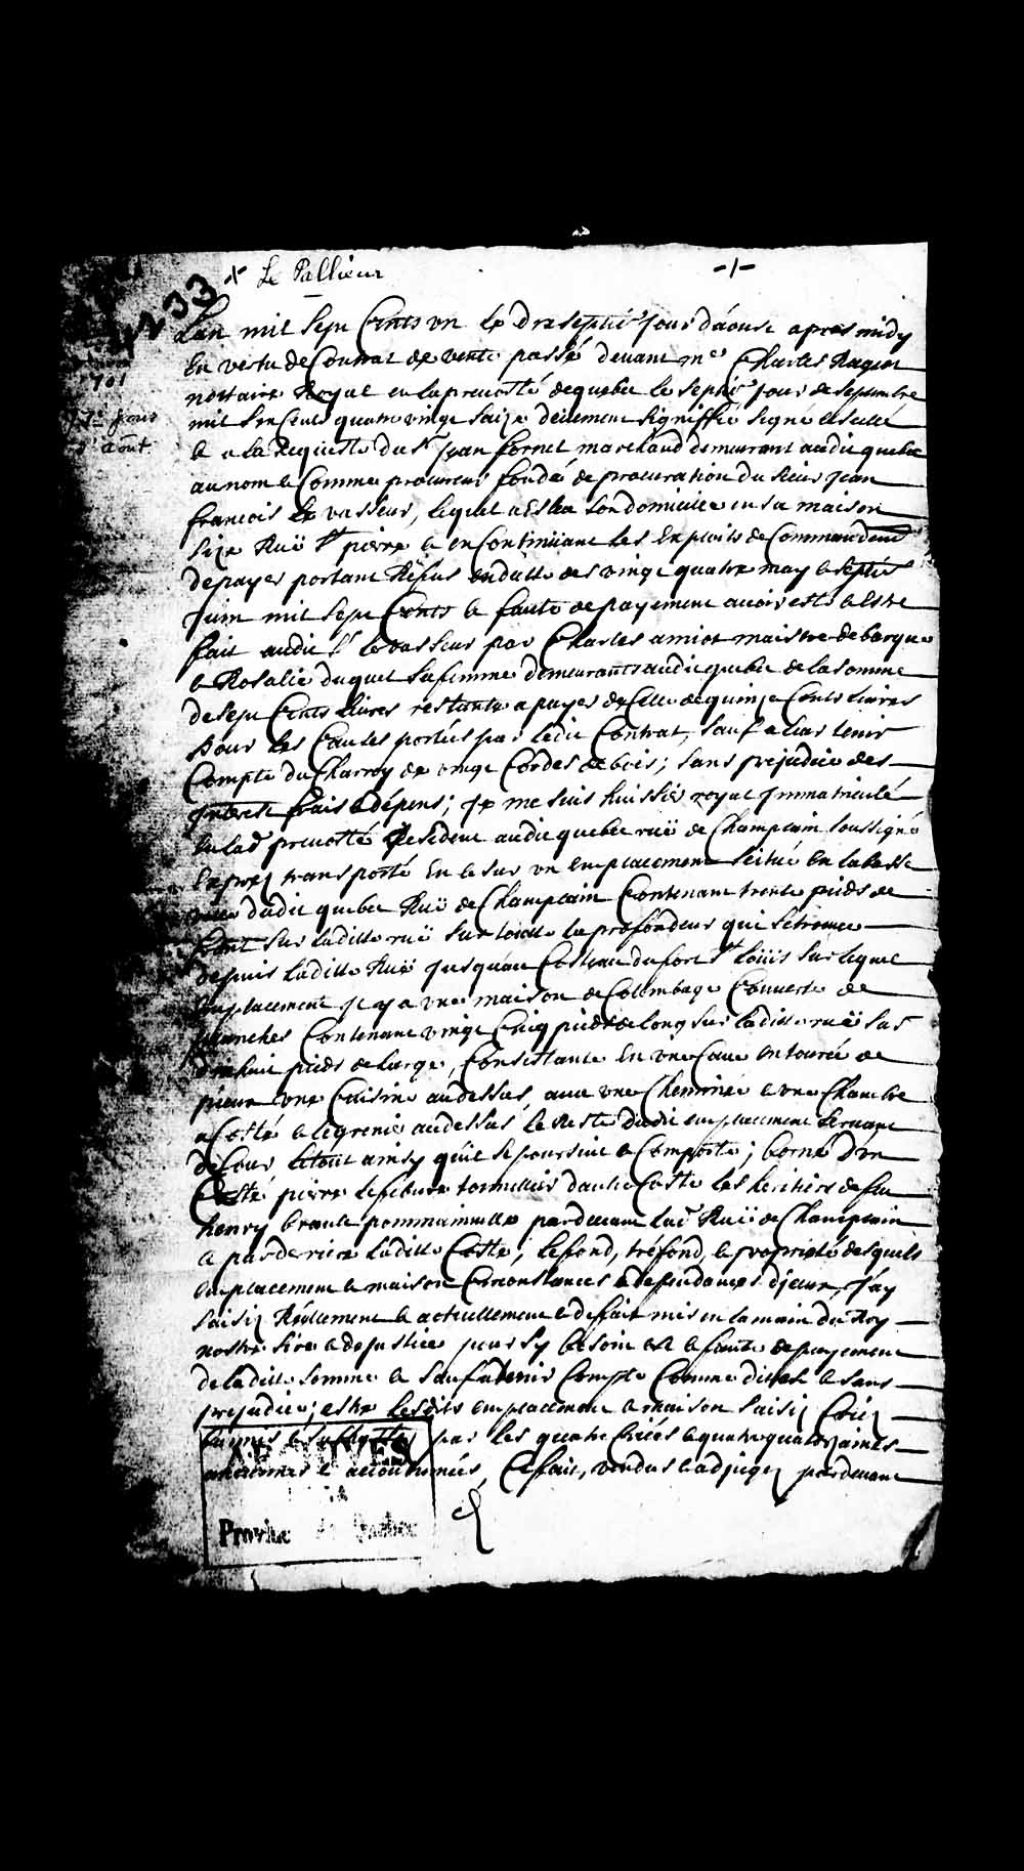 + Le Pallieur
-/-
N 33
701
17e jour
d'aout
Lan mil sept Cents un le dixseptie jour daoust apres midy
En vertu de Contrat de vente passé devant Me Charles Rageot
nottaire Royal en la prevosté de quebec le septie jour de Septembre
mil six Cent quatre vingt saize deüement signiffié signé et scellé
& a la Requeste du Sr Jean fornel marchand demeurant audit quebec
au nom & Comme procureur fondé de procuration du sieur Jean
francois le vasseur, lequel a Esleu son domicille en sa maison
size Ruë St pierre & en Continüant les Exploits de Commandemt
de payer portant Refus en datte des vingt quatre may & septie
Juin mil sept Cents & faute de payement avoir esté & Estre
fait audit Sr levasseur par Charles amiot maistre de barque
& Rosalie duquet sa femme demeurants audit quebec de la somme
de sept Cents livres restante a payer de Celle de quinze Cents livres
pour les Causes portées par ledit Contrat, sauf a leur tenir
Compte du Charroy de vingt Cordes de bois; sans prejudice des
Interest frais & dépens; Je me suis huissier royal Immatriculé
En lad prevosté Residant audit quebec ruë de Champlain soussigné
Exprez transporté En & sur un Emplacement scitué En la basse
ville dudit quebec Ruë de Champlain Contenant trente pieds de
front sur laditte ruë sur toutte la profondeur qui se trouve
depuis laditte Ruë Jusqu'au Costeau du fort St Loüis sur lequel
Emplacement Il y a une maison de Colombage Couverte de
planches Contenant vingt Cinq pieds de long sur laditte ruë sur
dixhuit pieds de large, Consistante En une Cave entourée de
pieux une Cuisine au dessus, avec une Cheminée & une Chambre
a Costé & le grenier au dessus le Reste dudit emplacement servant
de Cour le tout ainsy qu'il se poursuit & Comporte; borné d'un
Costé pierre lefebvre tonnellier d'autre Costé les heritiers de feu
henry brault pomminville pardevant lad Ruë de Champlain
& par derriere laditte Coste; le fond, tréfond, & propriété desquels
emplacement & maison Circonstances & dependances d'jceux, J'ay
saisiz Réellement & actuellement & de fait mis en la main du Roy
nostre sire & de justice pour sy besoin est & faute de payement
de laditte somme & sauf a tenir Compte Comme dit est & sans
prejudice; estre lesdits emplacement & maison saisiz Criez
par les quatre Criées & quatre quatorzaines
accoutumées, Ce fait, vendus & adjugez pardevant
ARCHIVES
Province de Québec